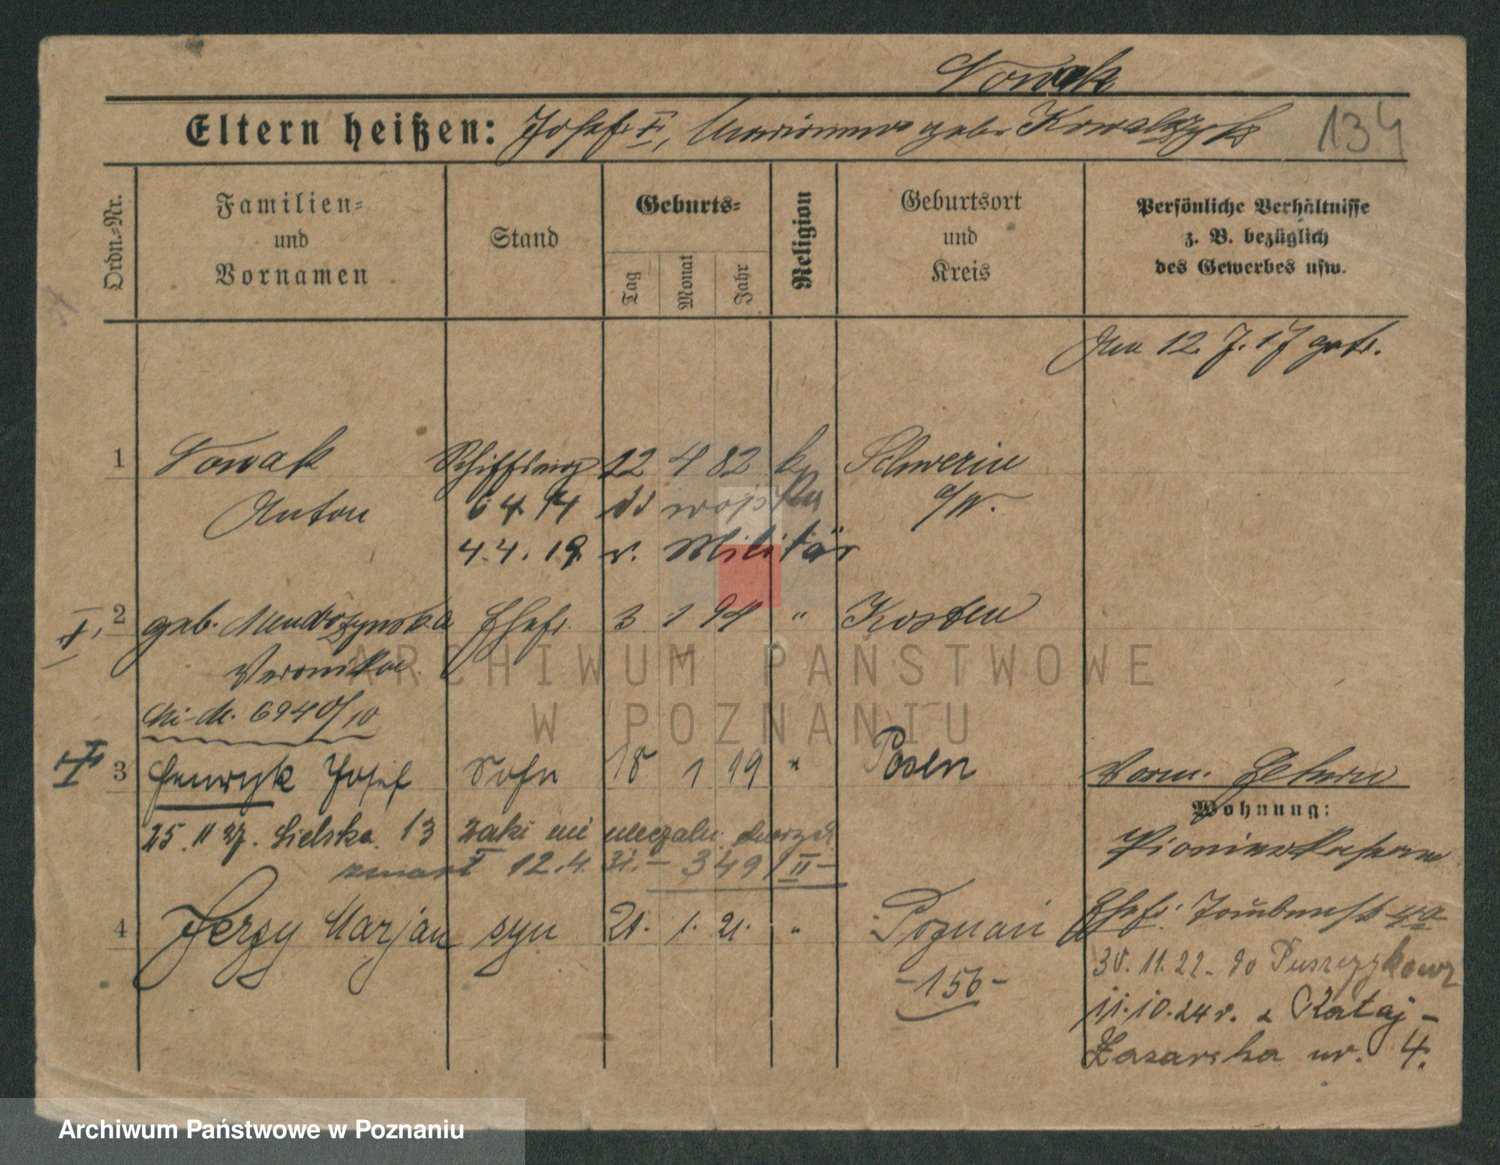 Nowak
Eltern heißen: Josef †, Marianna geb. Kowalczyk 134
Ordn.-Nr.
Familien-
und
Vornamen
Stand
Geburts-
Tag
Monat
Jahr
Religion
Geburtsort
und
Kreis
Persönliche Verhältnisse
z. B. bezüglich
des Gewerbes usw.
12. 7. 17 getr.
1 Nowak 22 4 82 k. Schwerin
Anton 6 4 14 do wojska a/W.
4.4.19 v. Militär
2 geb. Veronika Ehefr. 3 1 94 " Kosten
6940/10
3 Henryk Josef Sohn 18 1 19 " Posen
25.11.27. Sielska 13 taki nie
zmarł 12.4. 31. - 349/II -
Wohnung:
4 Jerzy Marjan syn 21. 1. 21. " Poznań
-156-
Ehefr. 4a
30.11.22. do Puszczykowa
11.10.24 r. z Rataj-
Łazarska nr. 4.
ARCHIWUM PAŃSTWOWE
W POZNANIU
Archiwum Państwowe w Poznaniu